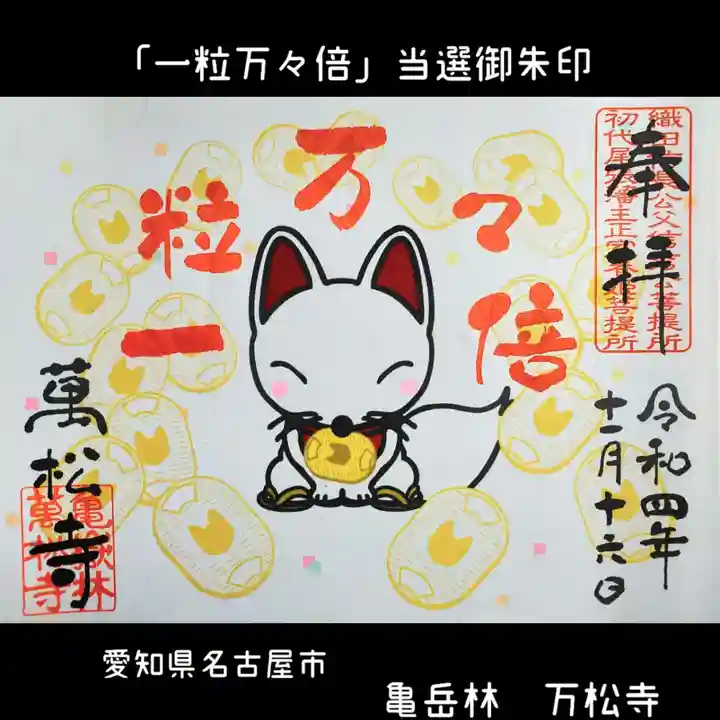 「一粒万々倍」当選御朱印
奉拝
織田信長公父信秀公菩提所
初代尾張藩主正室春姫菩提所
一粒万々倍
令和四年
十一月十六日
萬松寺
亀嶽林
萬松寺
愛知県名古屋市
亀岳林 万松寺